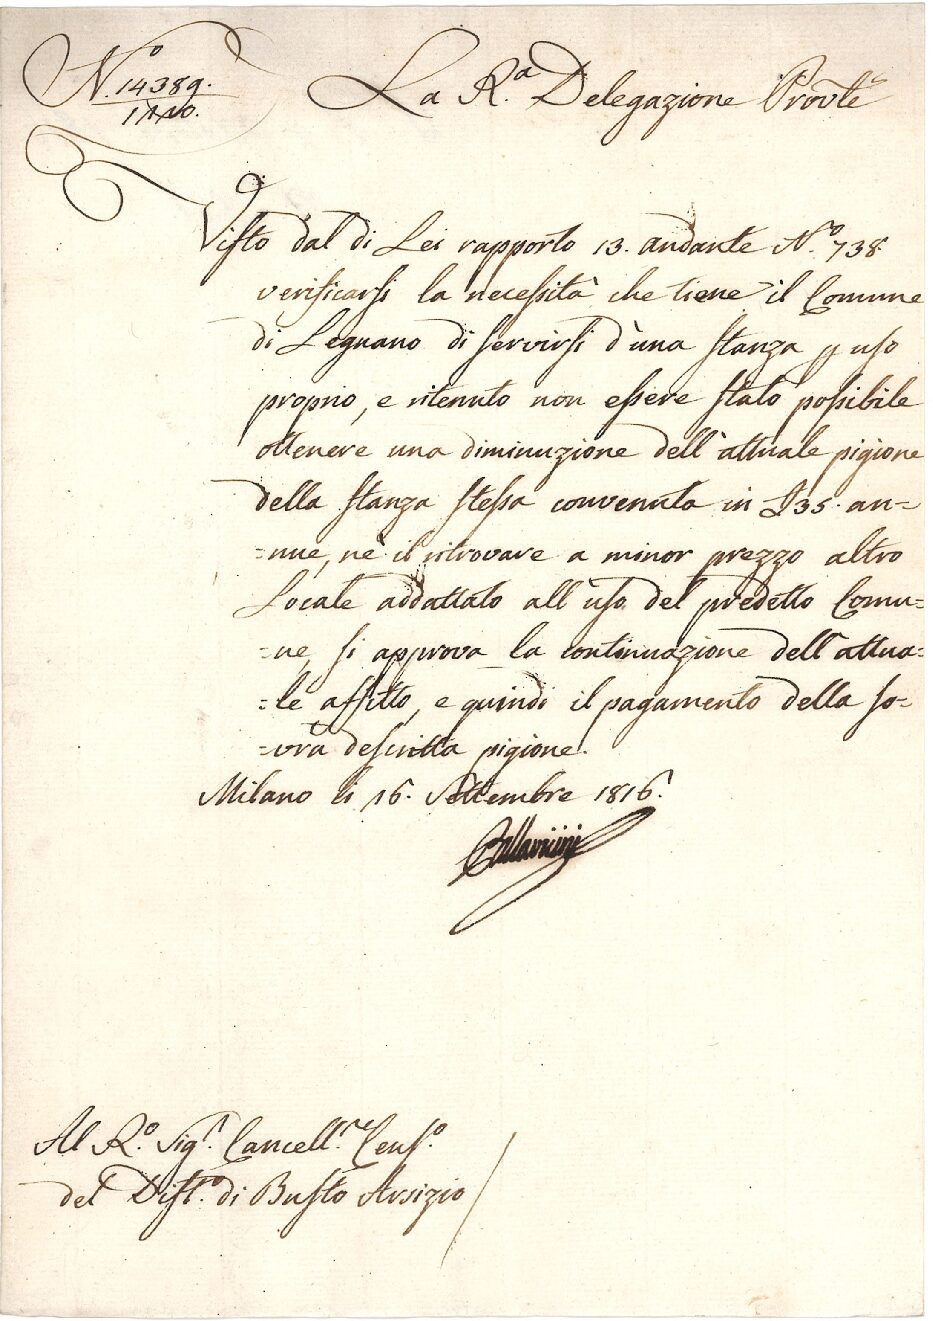 N.º 14389.
La R.ª Delegazione Prov.le
Visto dal di Lei rapporto 13. andante N.º 738
verificarsi la necessità che tiene il Comune
di Legnano di servirsi d'una stanza p uso
proprio, e ritenuto non essere stato possibile
ottenere una diminuzione dell'attuale pigione
della stanza stessa convenuta in £ 35. an=
=nue, nè il ritrovare a minor prezzo altro
Locale addattato all'uso del predetto Comu=
=ne, si approva la continuazione dell'attua=
=le affitto, e quindi il pagamento della so=
=vra descritta pigione.
Milano li 16. Settembre 1816.
Al R.º Sig.r Cancell.re Cens.º
del Dist.º di Busto Arsizio